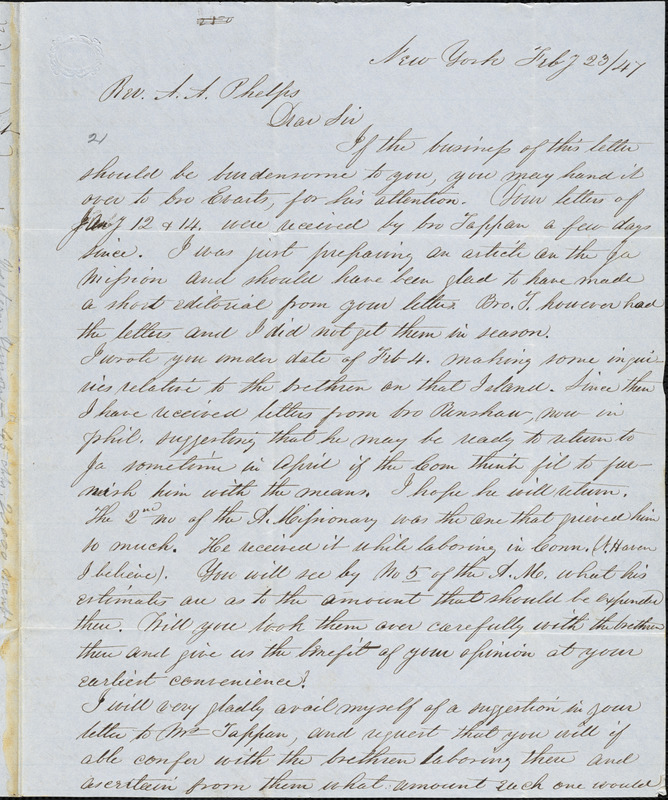 250
New York Feby 23/47
Rev. A. A. Phelps
Dear Sir
21
If the business of this letter
should be burdensome to you, you may hand it
over to bro Evarts, for his attention. Your letters of
Jany 12 & 14. were received by bro Tappan a few days
since. I was just preparing an article on the Ja
Mission and should have been glad to have made
a short editorial from your letters. Bro. T. however had
the letters and I did not get them in season.
I wrote you under date of Feb 4. making some inqui
ries relative to the brethren on that Island. Since then
I have received letters from bro Renshaw, now in
Phil. suggesting that he may be ready to return to
Ja sometime in April if the Com think fit to fur-
nish him with the means. I hope he will return.
The 2nd no of the A. Missionary was the one that grieved him
so much. He received it while laboring in Conn. (N. Haven
I believe). You will see by No 5 of the A. M. what his
estimates are as to the amount that should be expended
there. Will you look them over carefully with the brethren
there and give us the benefit of your opinion at your
earliest convenience?
I will very gladly avail myself of a suggestion in your
letter to Mr Tappan, and request that you will if
able confer with the brethren laboring there and
ascertain from them what amount each one would